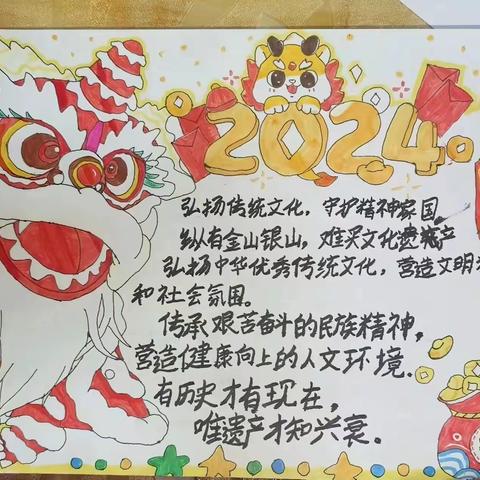 2024
弘扬传统文化，守护精神家园。
纵有金山银山，难买文化遗产
弘扬中华优秀传统文化，营造文明
和社会氛围。
传承艰苦奋斗的民族精神，
营造健康向上的人文环境．
有历史才有现在，
唯遗产才知兴衰．